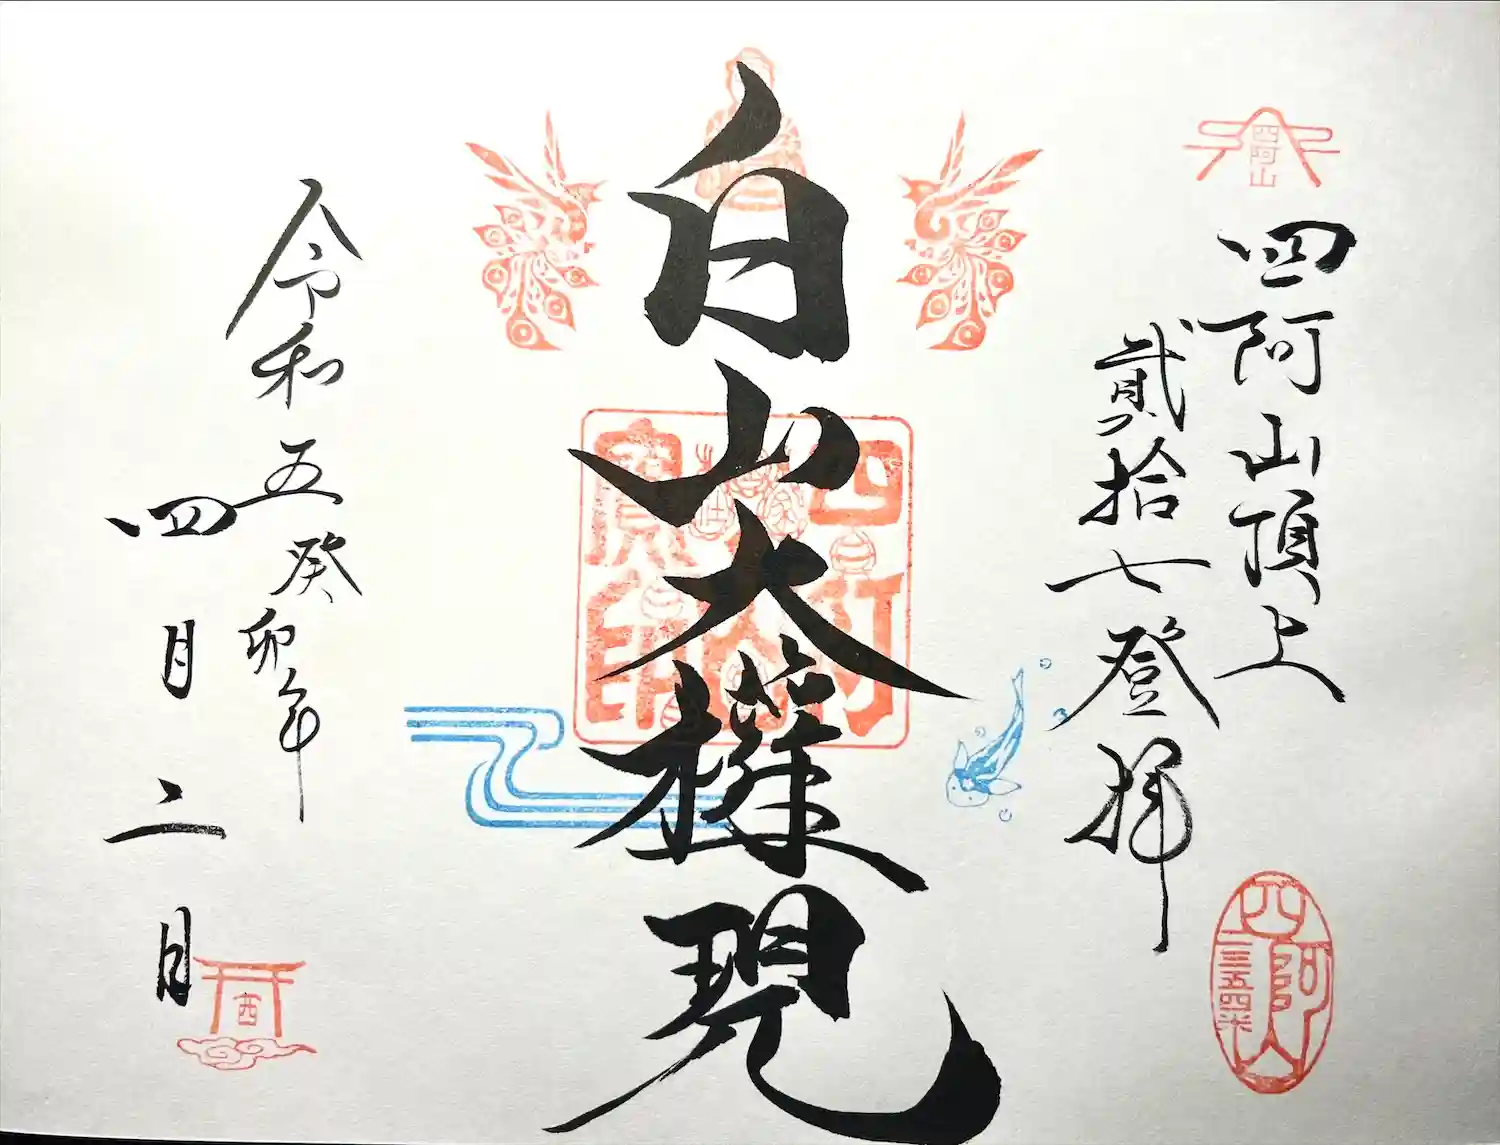 四阿山
四阿山頂上
貳拾七登拝
四阿山
二三五四米
白山大権現
四阿
寳印
令和五癸卯年
四月二日
西